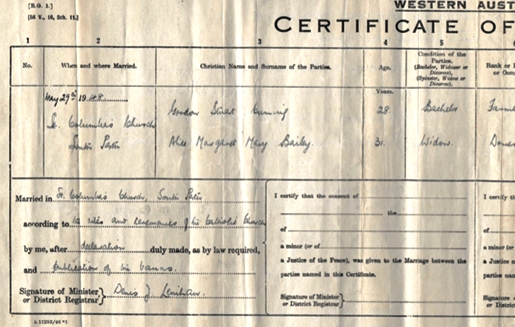 [R.G. 1.]
[58 V., 16, Sch. 11.]
WESTERN AUST
CERTIFICATE OF
1 2 3 4 5
No. When and where Married. Christian Name and Surname of the Parties. Age. Condition of the Parties. (Bachelor, Widower or Divorced), (Spinster, Widow or Divorced).
Years.
May 29th 1948.
Gordon Stuart 28. Bachelor Farme
St. Columba's Church
South Perth Alice Margaret Mary Bailey. 31. Widow. Domes
Married in St. Columba's Church, South Perth
according to the rites and ceremonies of the Catholic Church
by me, after declaration duly made, as by law required,
and publication of the banns.
Signature of Minister or District Registrar} Denis J. Lenihan.
I certify that the consent of
the
of
a minor (or of
a Justice of the Peace), was given to the Marriage between the
parties named in this Certificate.
Signature of Minister or District Registrar}
I certify
of
a minor
a Justice
parties name
Signature o
or District